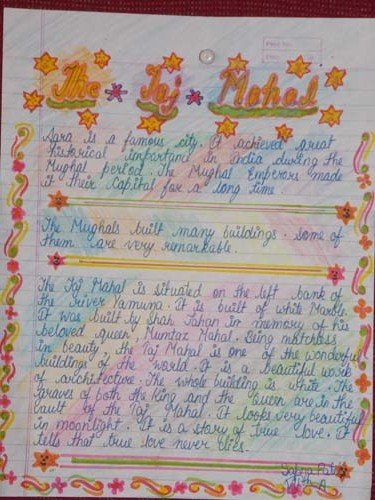 The Taj Mahal
Agra is a famous city. It achieved great
historical important in India during the
Mughal period. The Mughal Emperors made
it their Capital for a long time
The Mughals built many buildings. Some of
them are very remarkable.
The Taj Mahal is situated on the left bank of
the river Yamuna. It is built of white Marble.
It was built by Shah Jahan in memory of his
beloved queen, Mumtaz Mahal. Being matchless
in beauty, the Taj Mahal is one of the wonderful
buildings of the world. It is a beautiful work
of architecture. The whole building is white. The
graves of both the king and the Queen are in the
vault of the Taj Mahal. It looks very beautiful
in moonlight. It is a story of true love. It
tells that true love never dies.